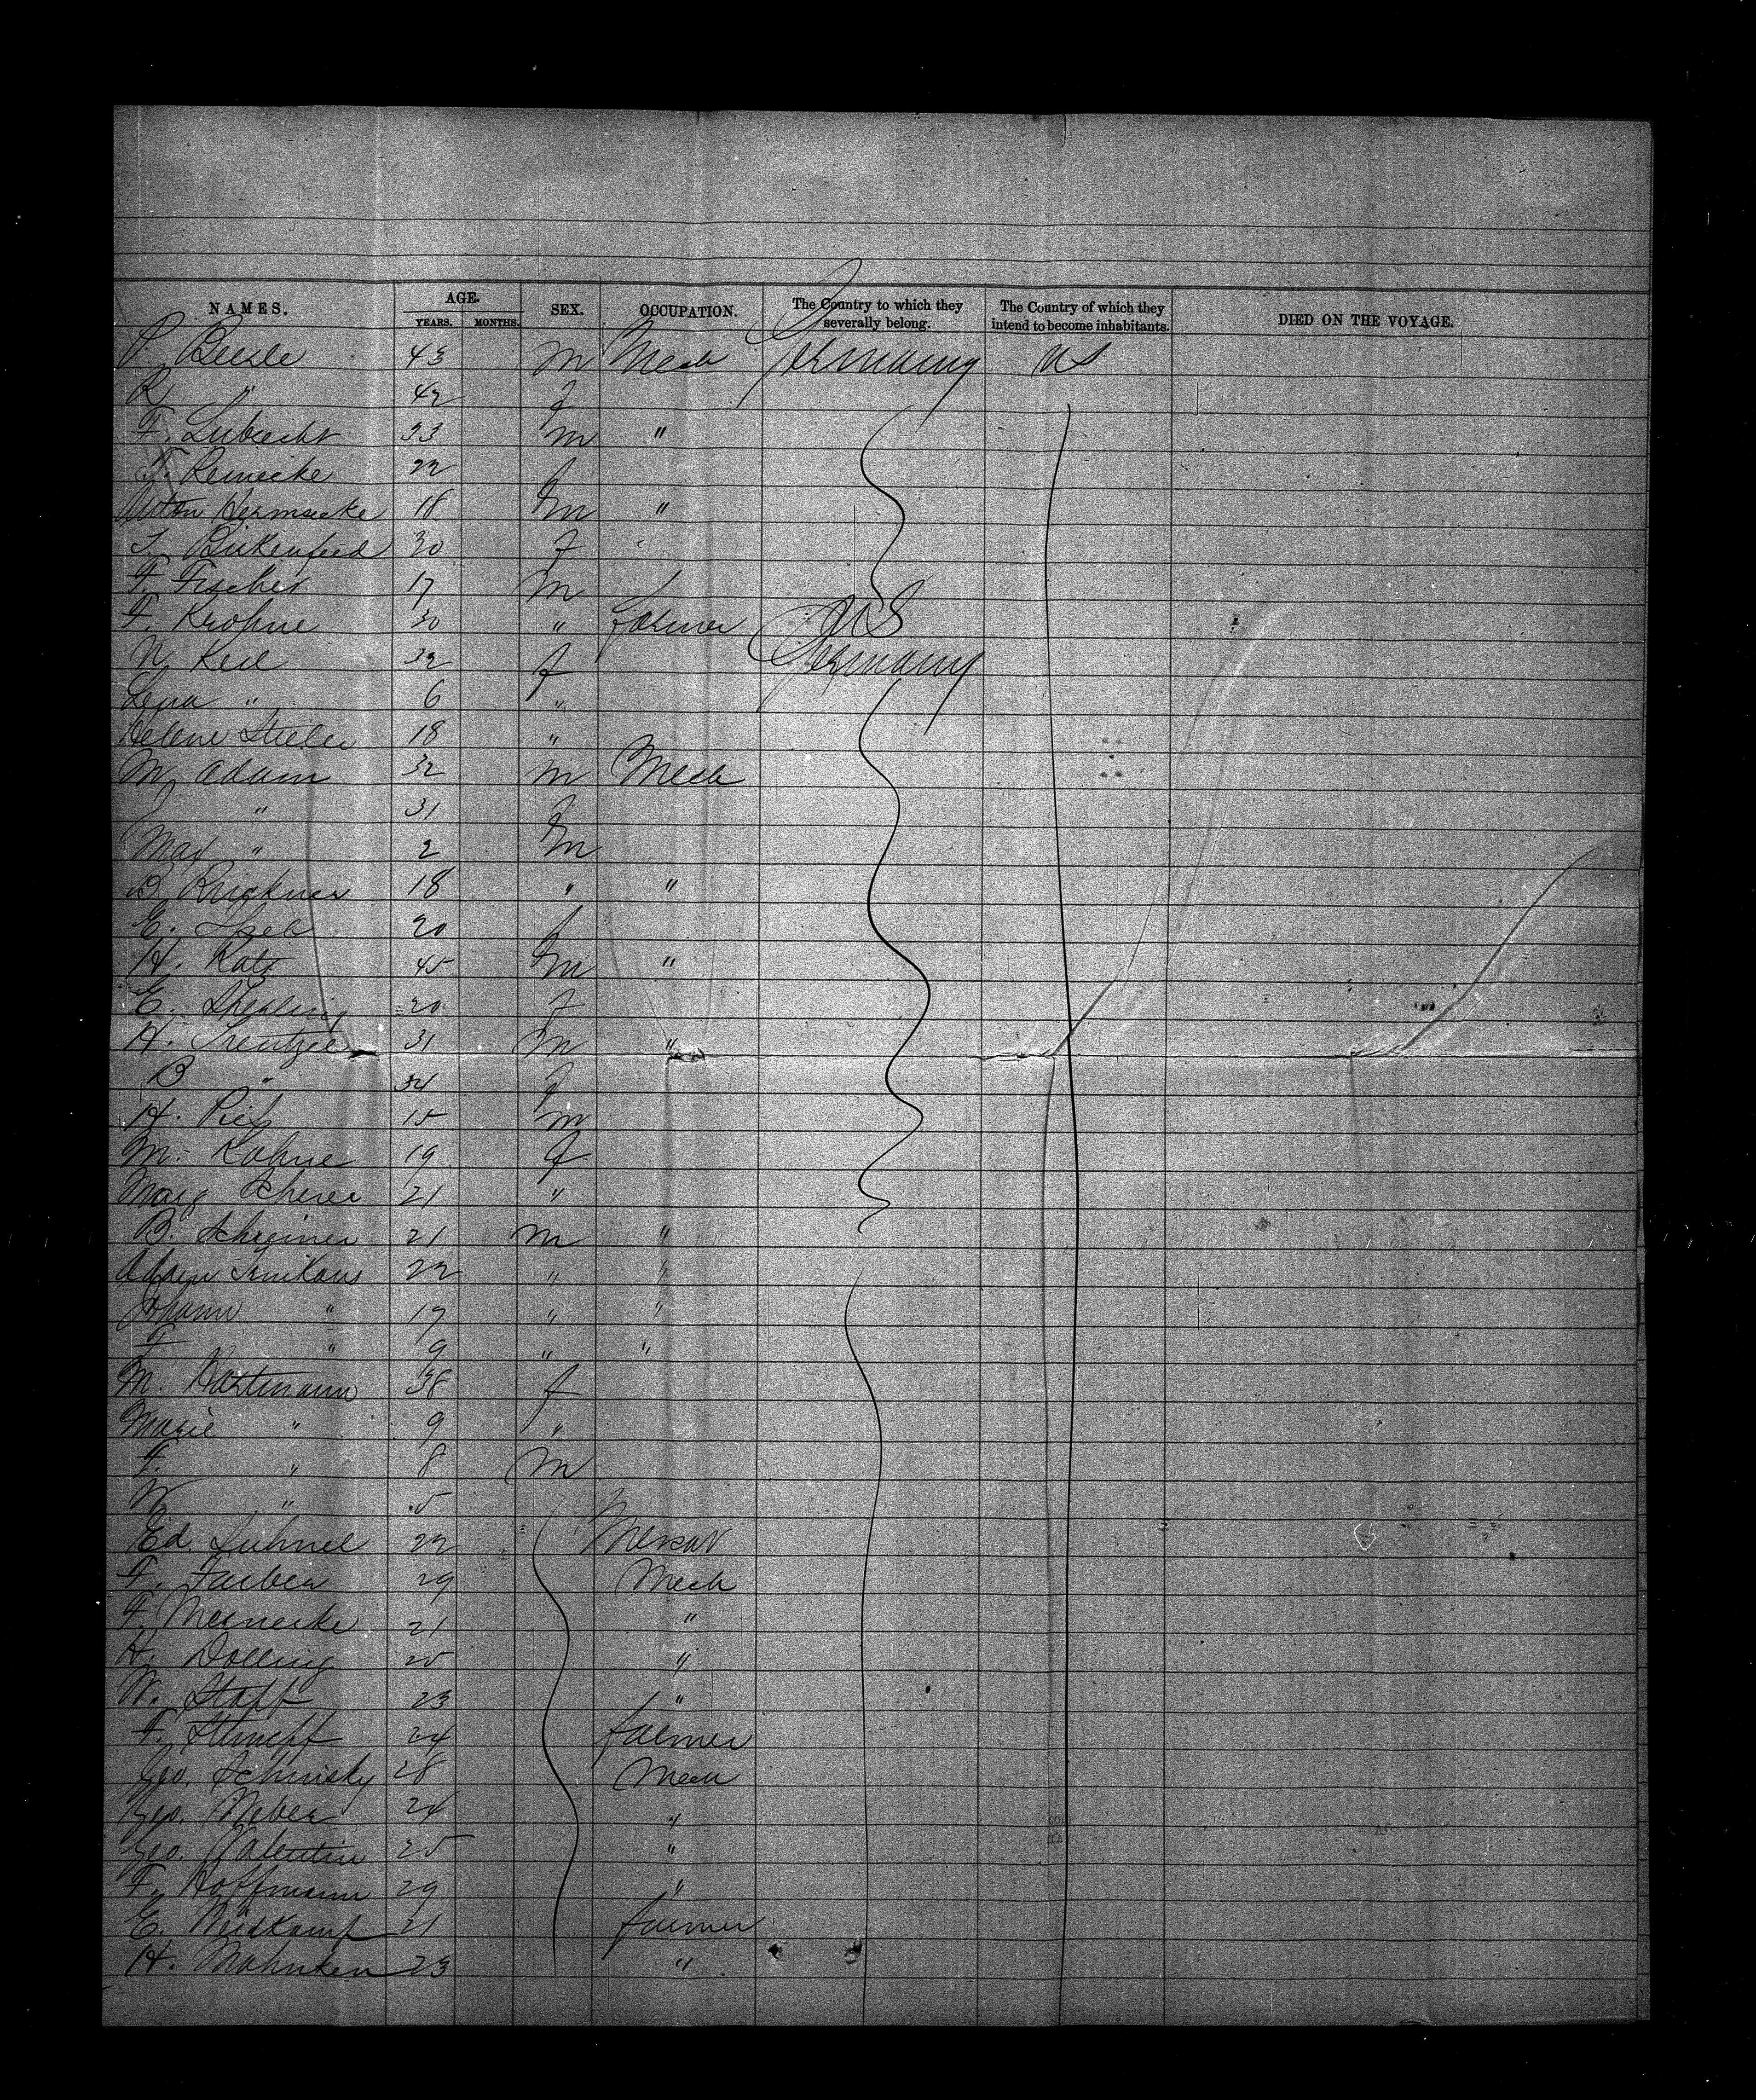 NAMES. AGE. SEX. OCCUPATION. The Country to which they severally belong. The Country of which they intend to become inhabitants. DIED ON THE VOYAGE.
YEARS. MONTHS.
43 m Mech Germany US
R " 42 f
F. Lubrecht 33 m "
F. Reinecke 22 f
Anton Hermsecke 18 m "
Birkenfeed 30 f
F. Fischer 17 m
F. Krohne 30 " farmer US
N. Keil 32 f Germany
Lena " 6 "
Helene Stieler 18 "
M. Adam 32 m Mech
" 31 f
Max " 2 m
B. Brickner 18 " "
E. 20 f
H. Katz 45 m "
E. 20 f
H. 31 m "
B " 34 f
H. 15 m
M. Kohne 19 f
Marg Scherer 21 "
B. Schreiner 21 m "
22 " "
Johann " 17 " "
F " 9 " "
M. Hartmann 38 f
Marie " 9 "
F. " 8 m
W " 5
Ed. Kuhnel 22
F. Farber 29 Mech
F. Meinecke 21 "
H. Dolling 25 "
W. Stapf 23 "
F. Stumpff 24 farmer
Geo. Schinsky 28 Mech
Geo. Weber 24 "
Geo. Valentin 25 "
F. Hoffmann 29 "
E. 21 farmer
H. Mahnken 23 "